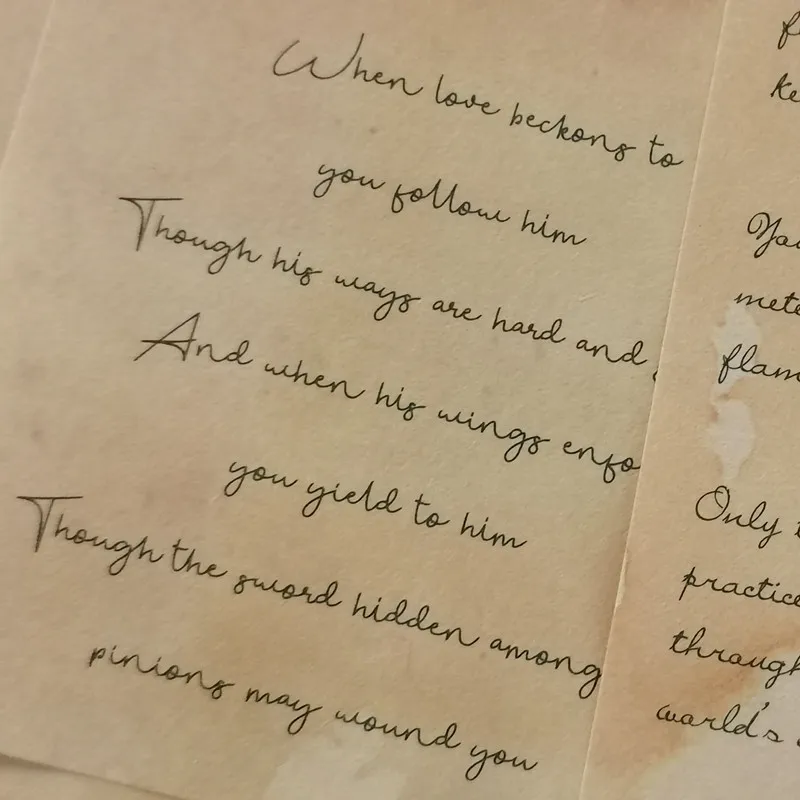 When love beckons to
you follow him
Though his ways are hard and
And when his wings
you yield to him
Though the sword hidden among
pinions may wound you
Only
through
world's